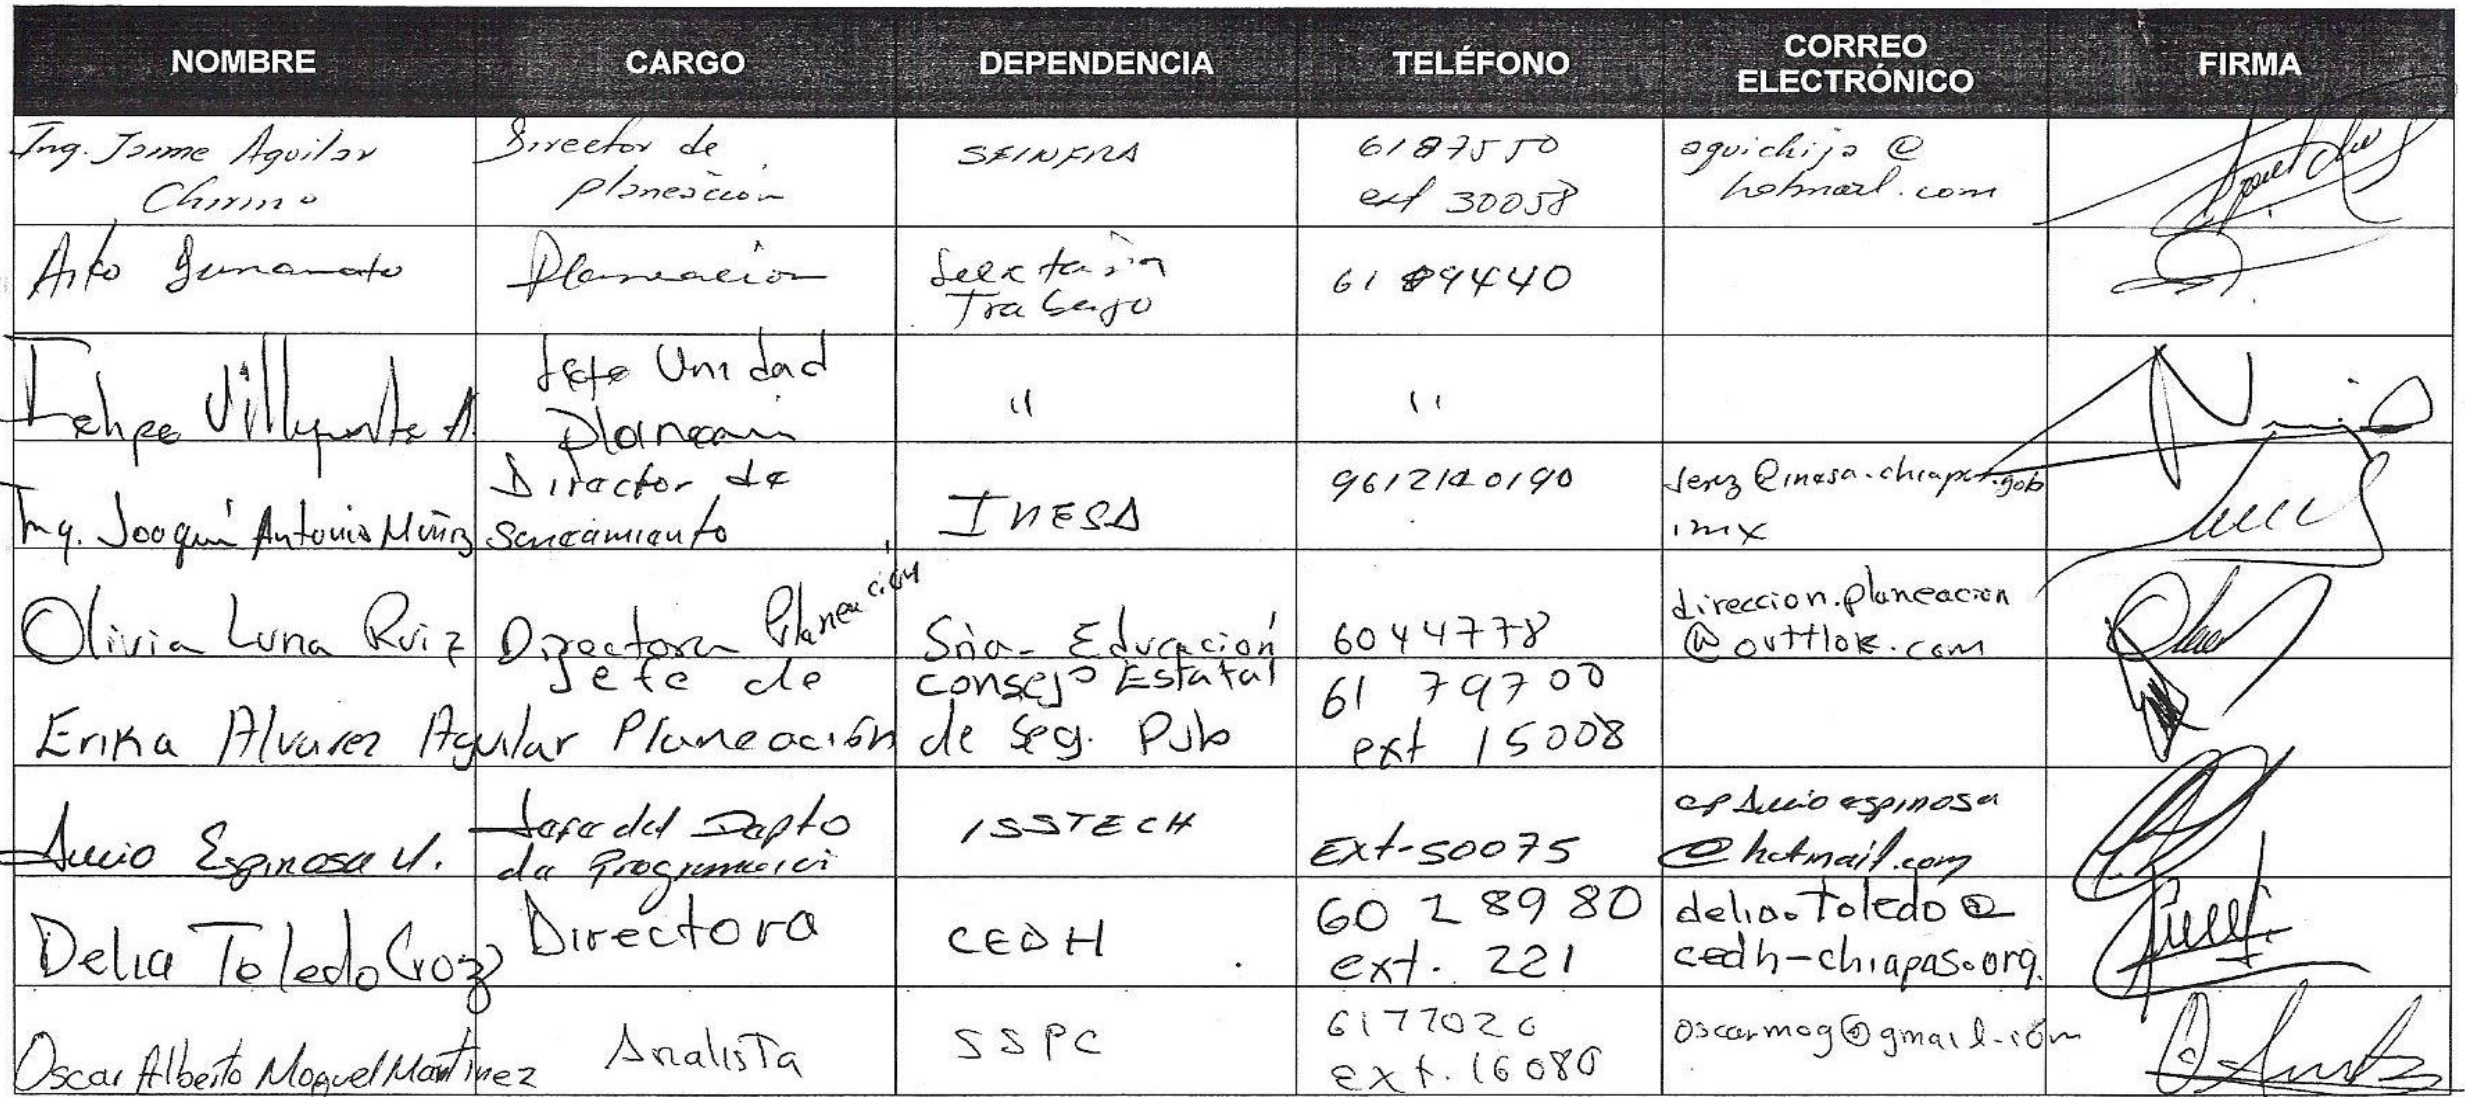 NOMBRE
CARGO
DEPENDENCIA
TELÉFONO
CORREO
ELECTRÓNICO
FIRMA
Ing. Jaime Aguilar
Chirino
Director de
planeación
SEINFRA
6187550
ext 30058
aguichija @
hotmail.com
Planeación
Trabajo
6189440
Felipe
Jefe Unidad
"
"
Ing. Joaquín Antonio Muñiz
Director de
Saneamiento
INESA
.mx
Olivia Luna Ruiz
Directora Planeación
Sria. Educación
6044778
direccion.planeacion
@outtlok.com
Erika Alvarez Aguilar
Jefe de
Planeación
Consejo Estatal
de Seg. Pub
61 79700
ext 15008
Espinosa
Jefe del Depto
de
ISSTECH
Ext-50075
@hotmail.com
Delia Toledo Croz
Directora
CEDH
60 2 89 80
ext. 221
delia.toledo@
cedh-chiapas.org.
Oscar Alberto Moguel Martinez
Analista
SSPC
6177020
ext. 16080
oscarmog@gmail.com